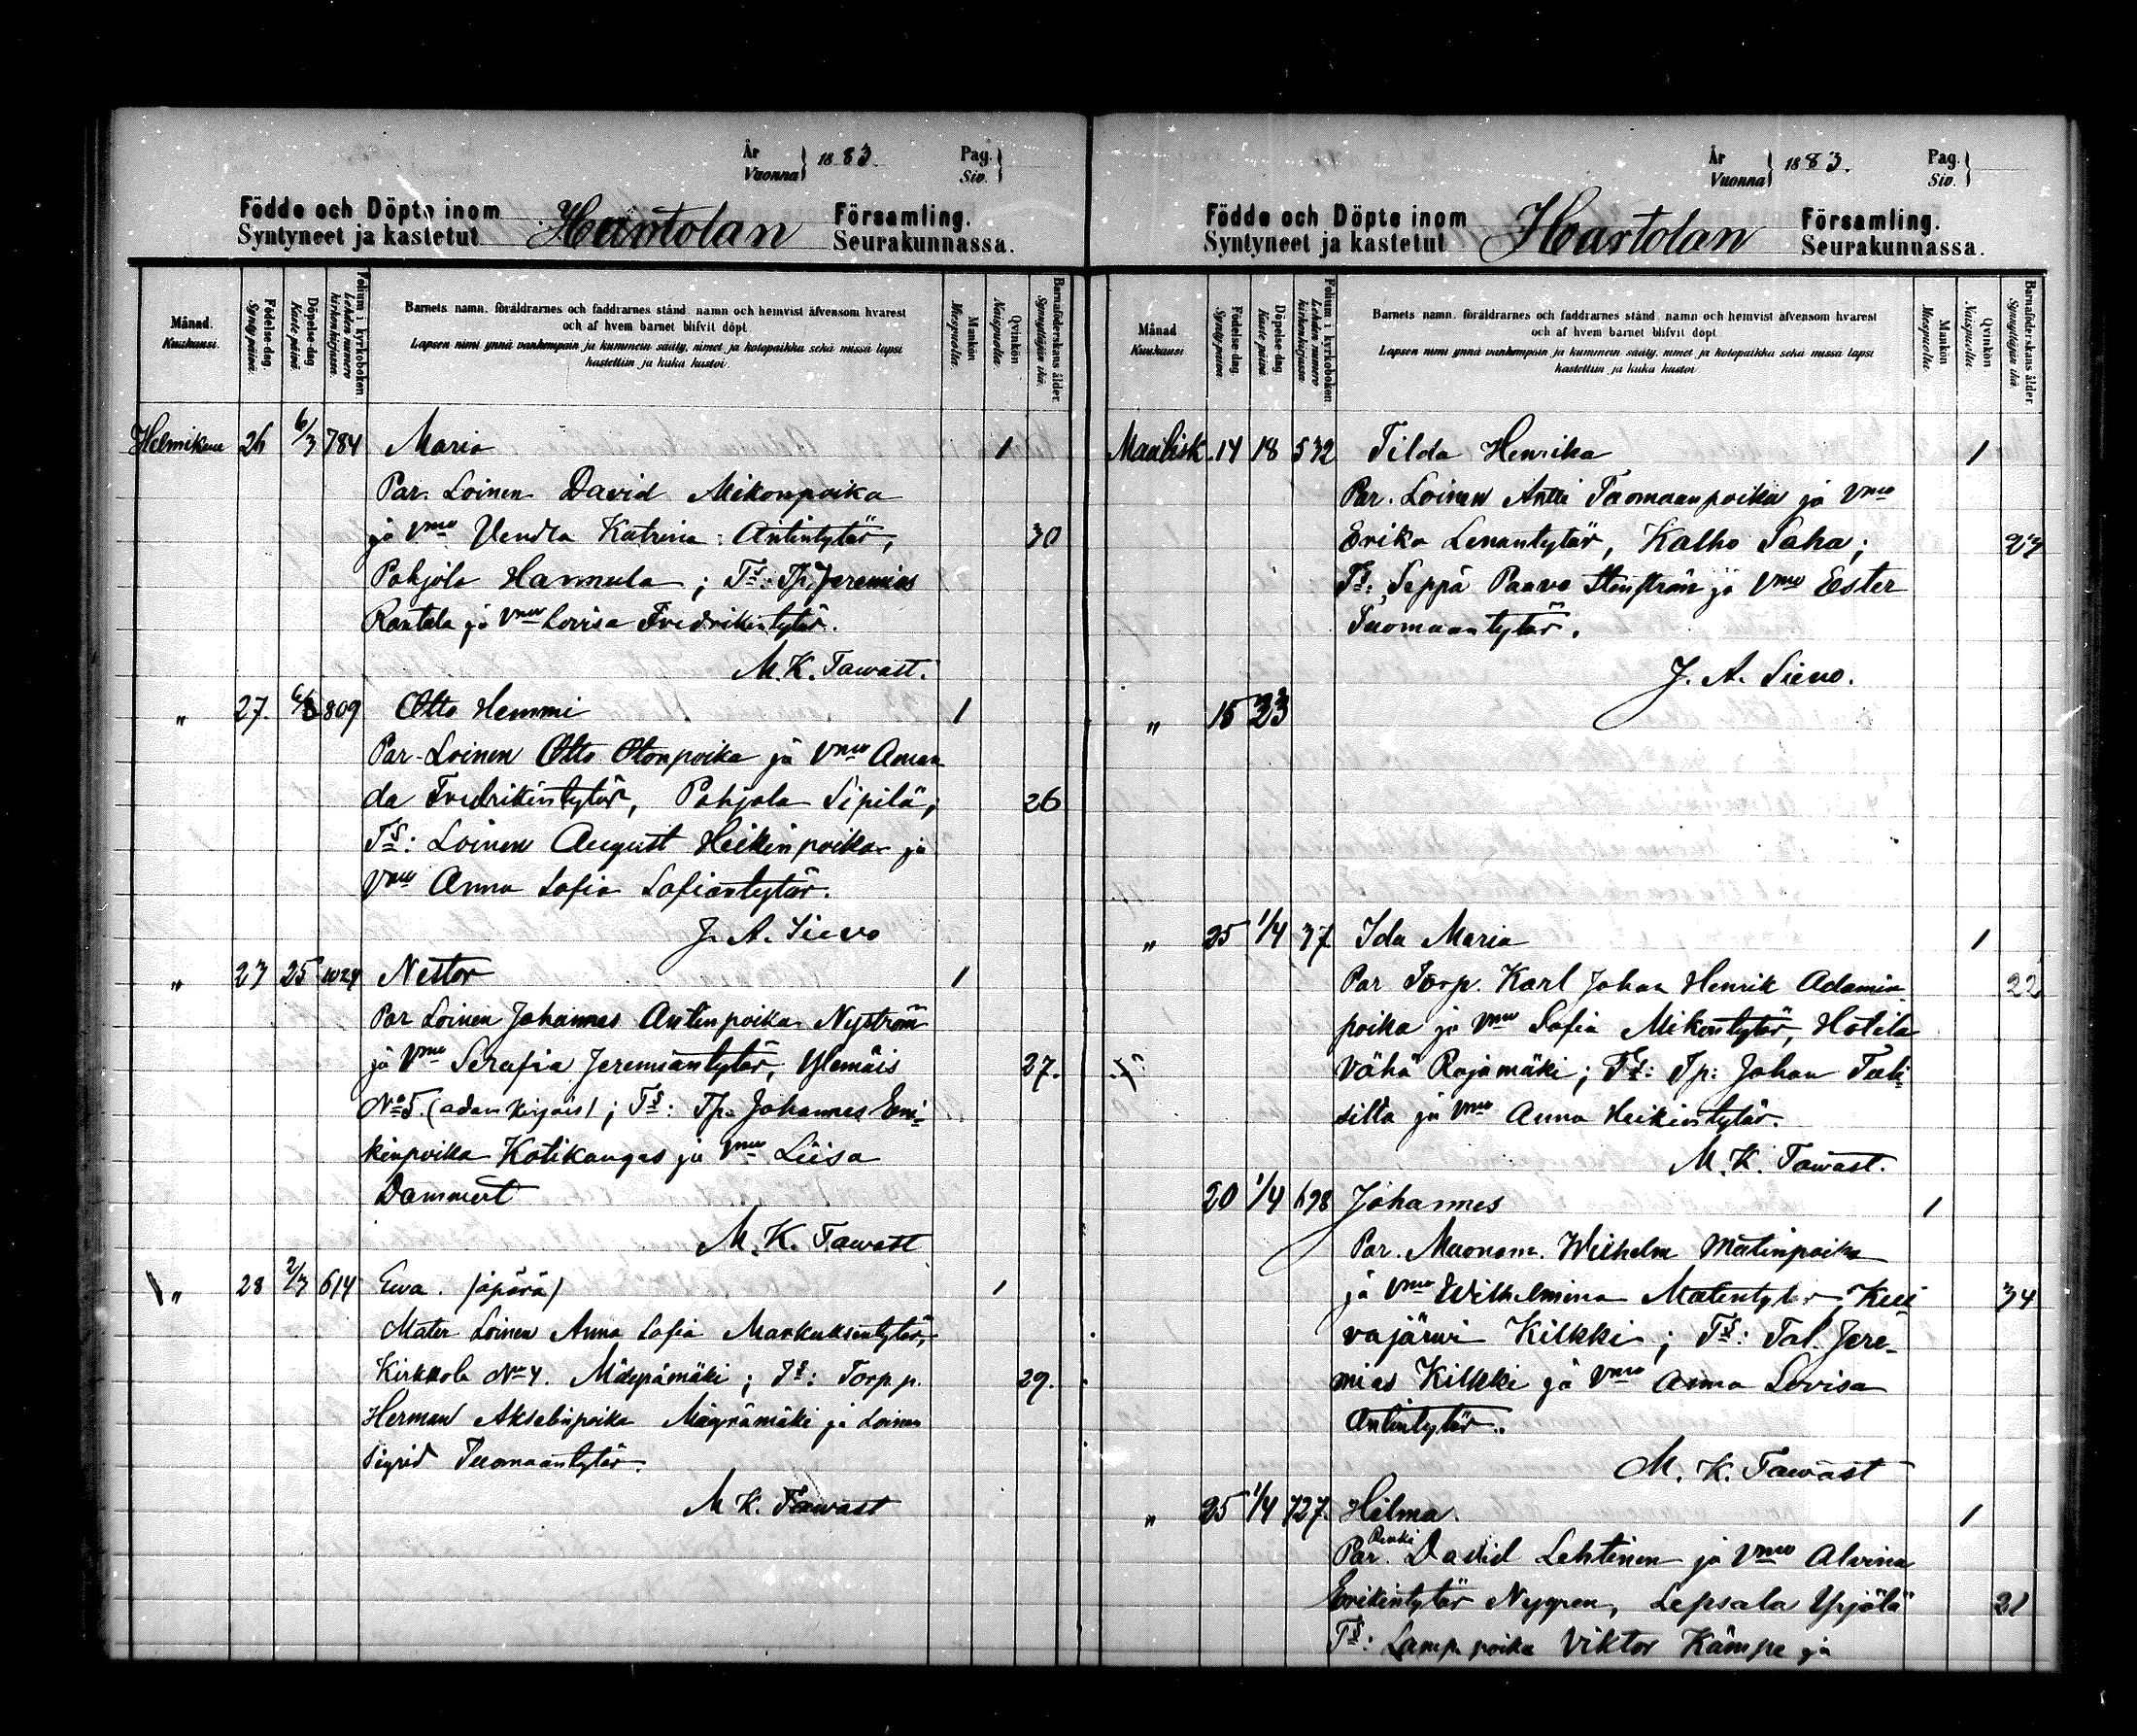 År
Vuonna } 1883.
Pag.
Siv. }
Födde och Döpte inom
Syntyneet ja kastetut
Hartolan
Församling.
Seurakunnassa.
Månad.
Kuukausi.
Födelse-dag.
Syntypäivä.
Döpelse-dag
Kastepäivä.
Folium i kyrkoboken
Lehden numero kirkonkirjassa.
Barnets namn, föräldrarnes och faddrarnes stånd, namn och hemvist äfvensom hvarest
och af hvem barnet blifvit döpt.
Lapsen nimi ynnä vanhempain ja kummein sääty, nimet ja kotopaikka sekä missä lapsi
kastettiin ja kuka kastoi.
Mankön
Miespuolia.
Qvinkön
Naispuolia.
Barnaföderskans ålder.
Synnyttäjän ikä.
Helmikuu 26 6/3 784 Maria 1
Par. Loinen David Mikonpoika
ja Vmo Vendla Katrina Antintytär, 30
Pohjola Hannula; Ts: Tp. Jeremias
Rantala ja Vmo Lovisa Fredrikintytär.
M. K. Tawast.
" 27. 6/3 809 Otto Hemmi 1
Par. Loinen Otto Otonpoika ja Vmo Aman
da Fredrikintytär, Pohjola Sipilä, 26
Ts: Loinen August Heikinpoika ja
Vmo Anna Sofia Sofiantytär.
J. A. Sievo
" 23 25 1024 Nestor 1
Par Loinen Johannes Antinpoika Nyström
ja Vmo Serafia Jeremiantytär, Ylemäis 27.
No 5. ; Ts: Tp. Johannes Eri-
kinpoika Kotikangas ja Vmo Liisa
Dammert
M. K. Tawast
" 28 2/3 614 Ewa. (äpärä) 1
Mater Loinen Anna Sofia Markuksentytär,
Kirkkola No 4. Mäyrämäki; Ts: Torp.p. 29.
Herman Akselinpoika Mäyrämäki ja Loinen
Sigrid Tuomaantytär.
M K. Tawast
År
Vuonna } 1883.
Pag.
Siv. }
Födde och Döpte inom
Syntyneet ja kastetut
Hartolan
Församling.
Seurakunnassa.
Månad
Kuukausi
Födelse-dag.
Syntypäivä
Döpelse-dag.
Kastepäivä
Folium i kyrkoboken.
Lehden numero kirkonkirjassa
Barnets namn, föräldrarnes och faddrarnes stånd, namn och hemvist äfvensom hvarest
och af hvem barnet blifvit döpt
Lapsen nimi ynnä vanhempain ja kummein sääty, nimet ja kotopaikka sekä missä lapsi
kastettiin ja kuka kastoi
Mankön
Miespuolia.
Qvinkön
Naispuolia.
Barnaföderskans ålder.
Synnyttäjän ikä
Maalisk. 14 18 532 Tilda Henrika 1
Par. Loinen Antti Tuomaanpoika ja Vmo
Erika Lenantytär, Kalho Saha; 27
Ts: Seppä Paavo Stenström ja Vmo Ester
Tuomaantytär.
J. A. Sievo.
" 15 23
" 25 1/4 37 Ida Maria 1
Par Torp. Karl Johan Henrik Adamin 22
poika ja Vmo Sofia Mikontytär, Hotila
Vähä Rajamäki; Ts: Tp: Johan Tali
silta ja Vmo Anna Heikintytär.
M. K. Tawast.
20 1/4 698 Johannes 1
Par. Muonam. Wilhelm Matinpoika
ja Vmo Wilhelmina Matintytär, Kui 34
vajärwi Kilkki; Ts: Tal. Jere-
mias Kilkki ja Vmo Anna Lovisa
Antintytär.
M. K. Tawast
" 25 1/4 727. Hilma. 1
Par. Renki David Lehtinen ja Vmo Alvina
Erikintytär Nygren, Lepsala Yrjölä 21
Ts: Lamp. poika Viktor Kämpe ja